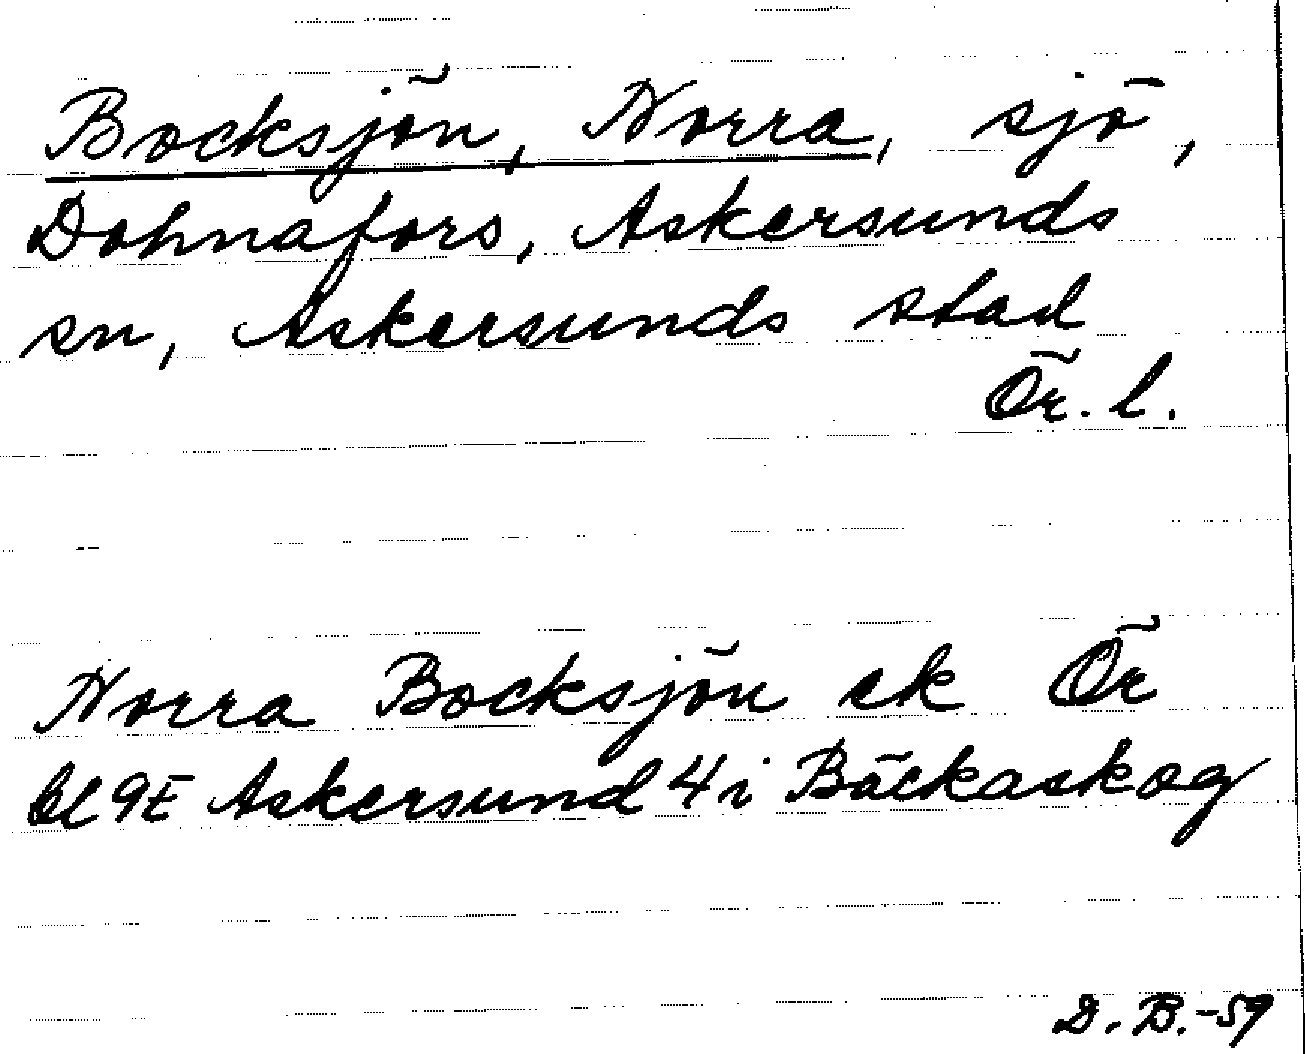 Bocksjön, Norra, sjö,
Dohnafors, Askersunds
sn, Askersunds stad
Ör. l.
Norra Bocksjön ek Ör
bl 9E Askersund 4i Bäckaskog
D. B. -59